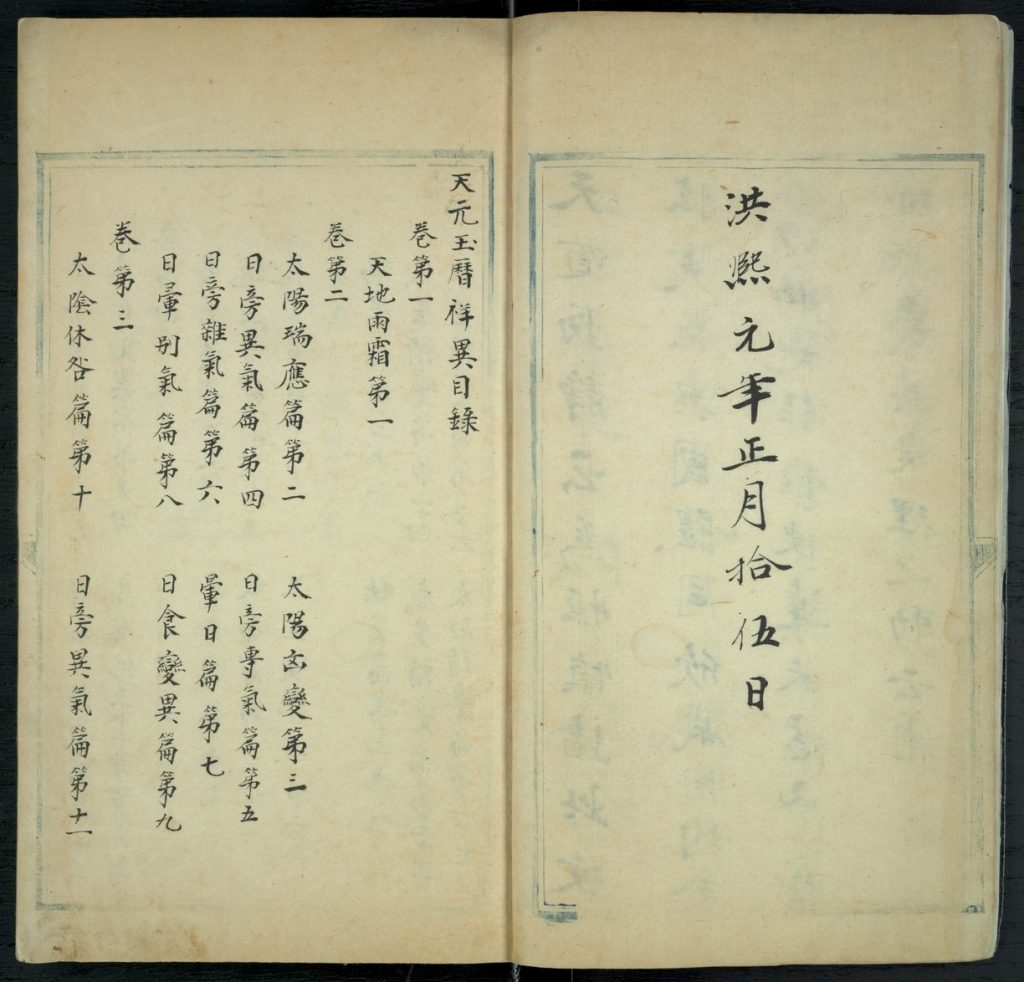 洪熙元年正月拾伍日
天元玉曆祥異目錄
卷第一
天地雨霜第一
卷第二
太陽瑞應篇第二 太陽凶變第三
日旁異氣篇第四 日旁專氣篇第五
日旁雜氣篇第六 暈日篇第七
日暈别氣篇第八 日食變異篇第九
卷第三
太陰休咎篇第十 日旁異氣篇第十一